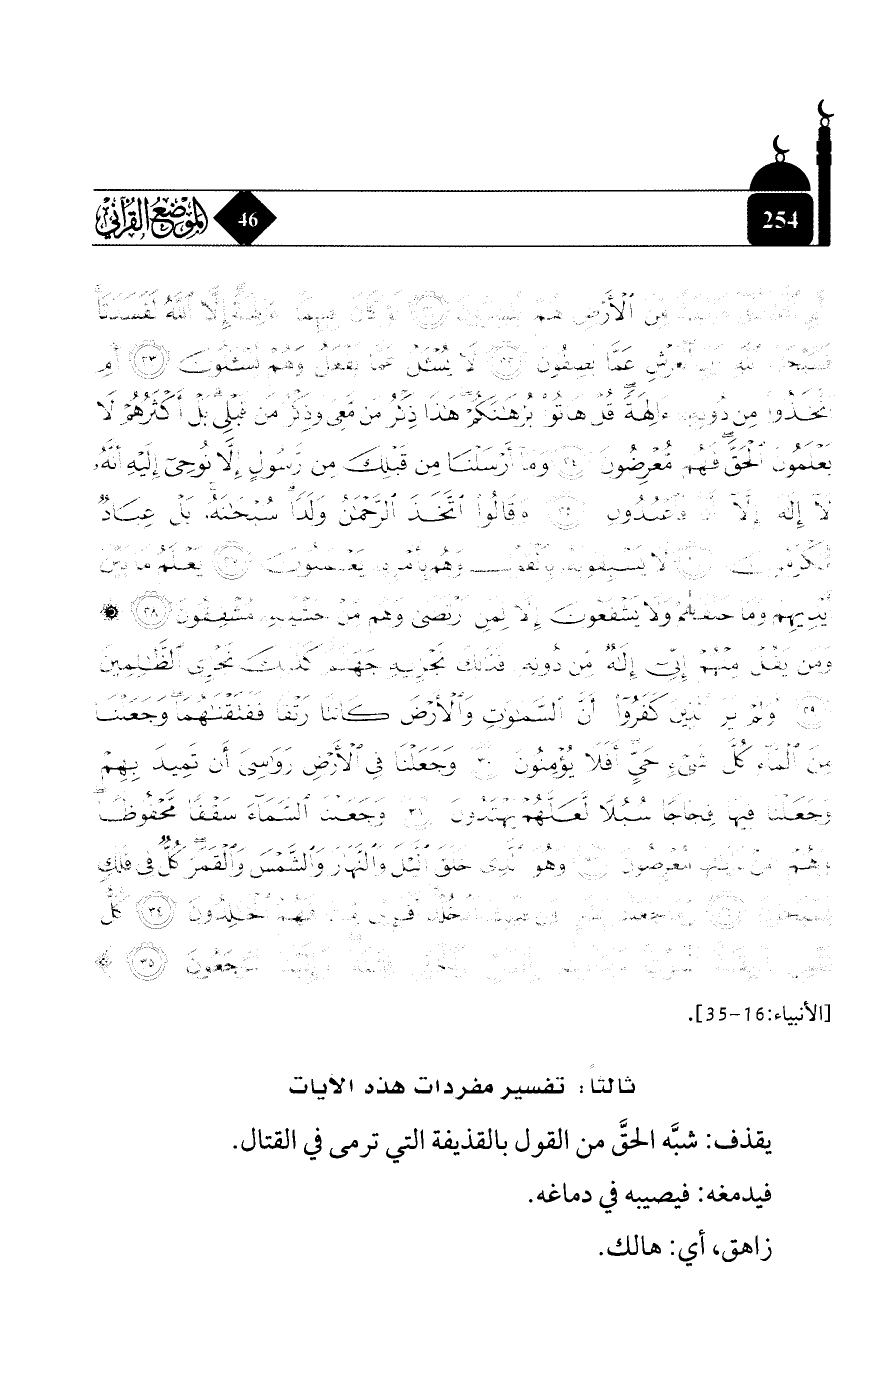 254
46
الموضع القرآني
مِّنَ الْأَرْضِ هُمْ يُنشِرُونَ ۝٢١ لَوْ كَانَ فِيهِمَا ءَالِهَةٌ إِلَّا اللَّهُ لَفَسَدَتَا
فَسُبْحَانَ اللَّهِ رَبِّ الْعَرْشِ عَمَّا يَصِفُونَ ۝٢٢ لَا يُسْـَٔلُ عَمَّا يَفْعَلُ وَهُمْ يُسْـَٔلُونَ ۝٢٣ أَمِ
اتَّخَذُوا مِن دُونِهِ ءَالِهَةً قُلْ هَاتُوا بُرْهَانَكُمْ هَٰذَا ذِكْرُ مَن مَّعِيَ وَذِكْرُ مَن قَبْلِي بَلْ أَكْثَرُهُمْ لَا
يَعْلَمُونَ الْحَقَّ فَهُم مُّعْرِضُونَ ۝٢٤ وَمَا أَرْسَلْنَا مِن قَبْلِكَ مِن رَّسُولٍ إِلَّا نُوحِي إِلَيْهِ أَنَّهُ
لَا إِلَٰهَ إِلَّا أَنَا فَاعْبُدُونِ ۝٢٥ وَقَالُوا اتَّخَذَ الرَّحْمَٰنُ وَلَدًا سُبْحَانَهُ بَلْ عِبَادٌ
مُّكْرَمُونَ ۝٢٦ لَا يَسْبِقُونَهُ بِالْقَوْلِ وَهُم بِأَمْرِهِ يَعْمَلُونَ ۝٢٧ يَعْلَمُ مَا بَيْنَ
أَيْدِيهِمْ وَمَا خَلْفَهُمْ وَلَا يَشْفَعُونَ إِلَّا لِمَنِ ارْتَضَىٰ وَهُم مِّنْ خَشْيَتِهِ مُشْفِقُونَ ۝٢٨ ۞
وَمَن يَقُلْ مِنْهُمْ إِنِّي إِلَٰهٌ مِّن دُونِهِ فَذَٰلِكَ نَجْزِيهِ جَهَنَّمَ كَذَٰلِكَ نَجْزِي الظَّالِمِينَ
۝٢٩ أَوَلَمْ يَرَ الَّذِينَ كَفَرُوا أَنَّ السَّمَاوَاتِ وَالْأَرْضَ كَانَتَا رَتْقًا فَفَتَقْنَاهُمَا وَجَعَلْنَا
مِنَ الْمَاءِ كُلَّ شَيْءٍ حَيٍّ أَفَلَا يُؤْمِنُونَ ۝٣٠ وَجَعَلْنَا فِي الْأَرْضِ رَوَاسِيَ أَن تَمِيدَ بِهِمْ
وَجَعَلْنَا فِيهَا فِجَاجًا سُبُلًا لَّعَلَّهُمْ يَهْتَدُونَ ۝٣١ وَجَعَلْنَا السَّمَاءَ سَقْفًا مَّحْفُوظًا
وَهُمْ عَنْ ءَايَاتِهَا مُعْرِضُونَ ۝٣٢ وَهُوَ الَّذِي خَلَقَ اللَّيْلَ وَالنَّهَارَ وَالشَّمْسَ وَالْقَمَرَ كُلٌّ فِي فَلَكٍ
يَسْبَحُونَ ۝٣٣ الْخُلْدَ فَهُمُ الْخَالِدُونَ ۝٣٤ كُلُّ
تُرْجَعُونَ ۝٣٥ ﴾
[الأنبياء:16-35].
ثالثاً: تفسير مفردات هذه الآيات
يقذف: شبَّه الحقَّ من القول بالقذيفة التي ترمى في القتال.
فيدمغه: فيصيبه في دماغه.
زاهق، أي: هالك.